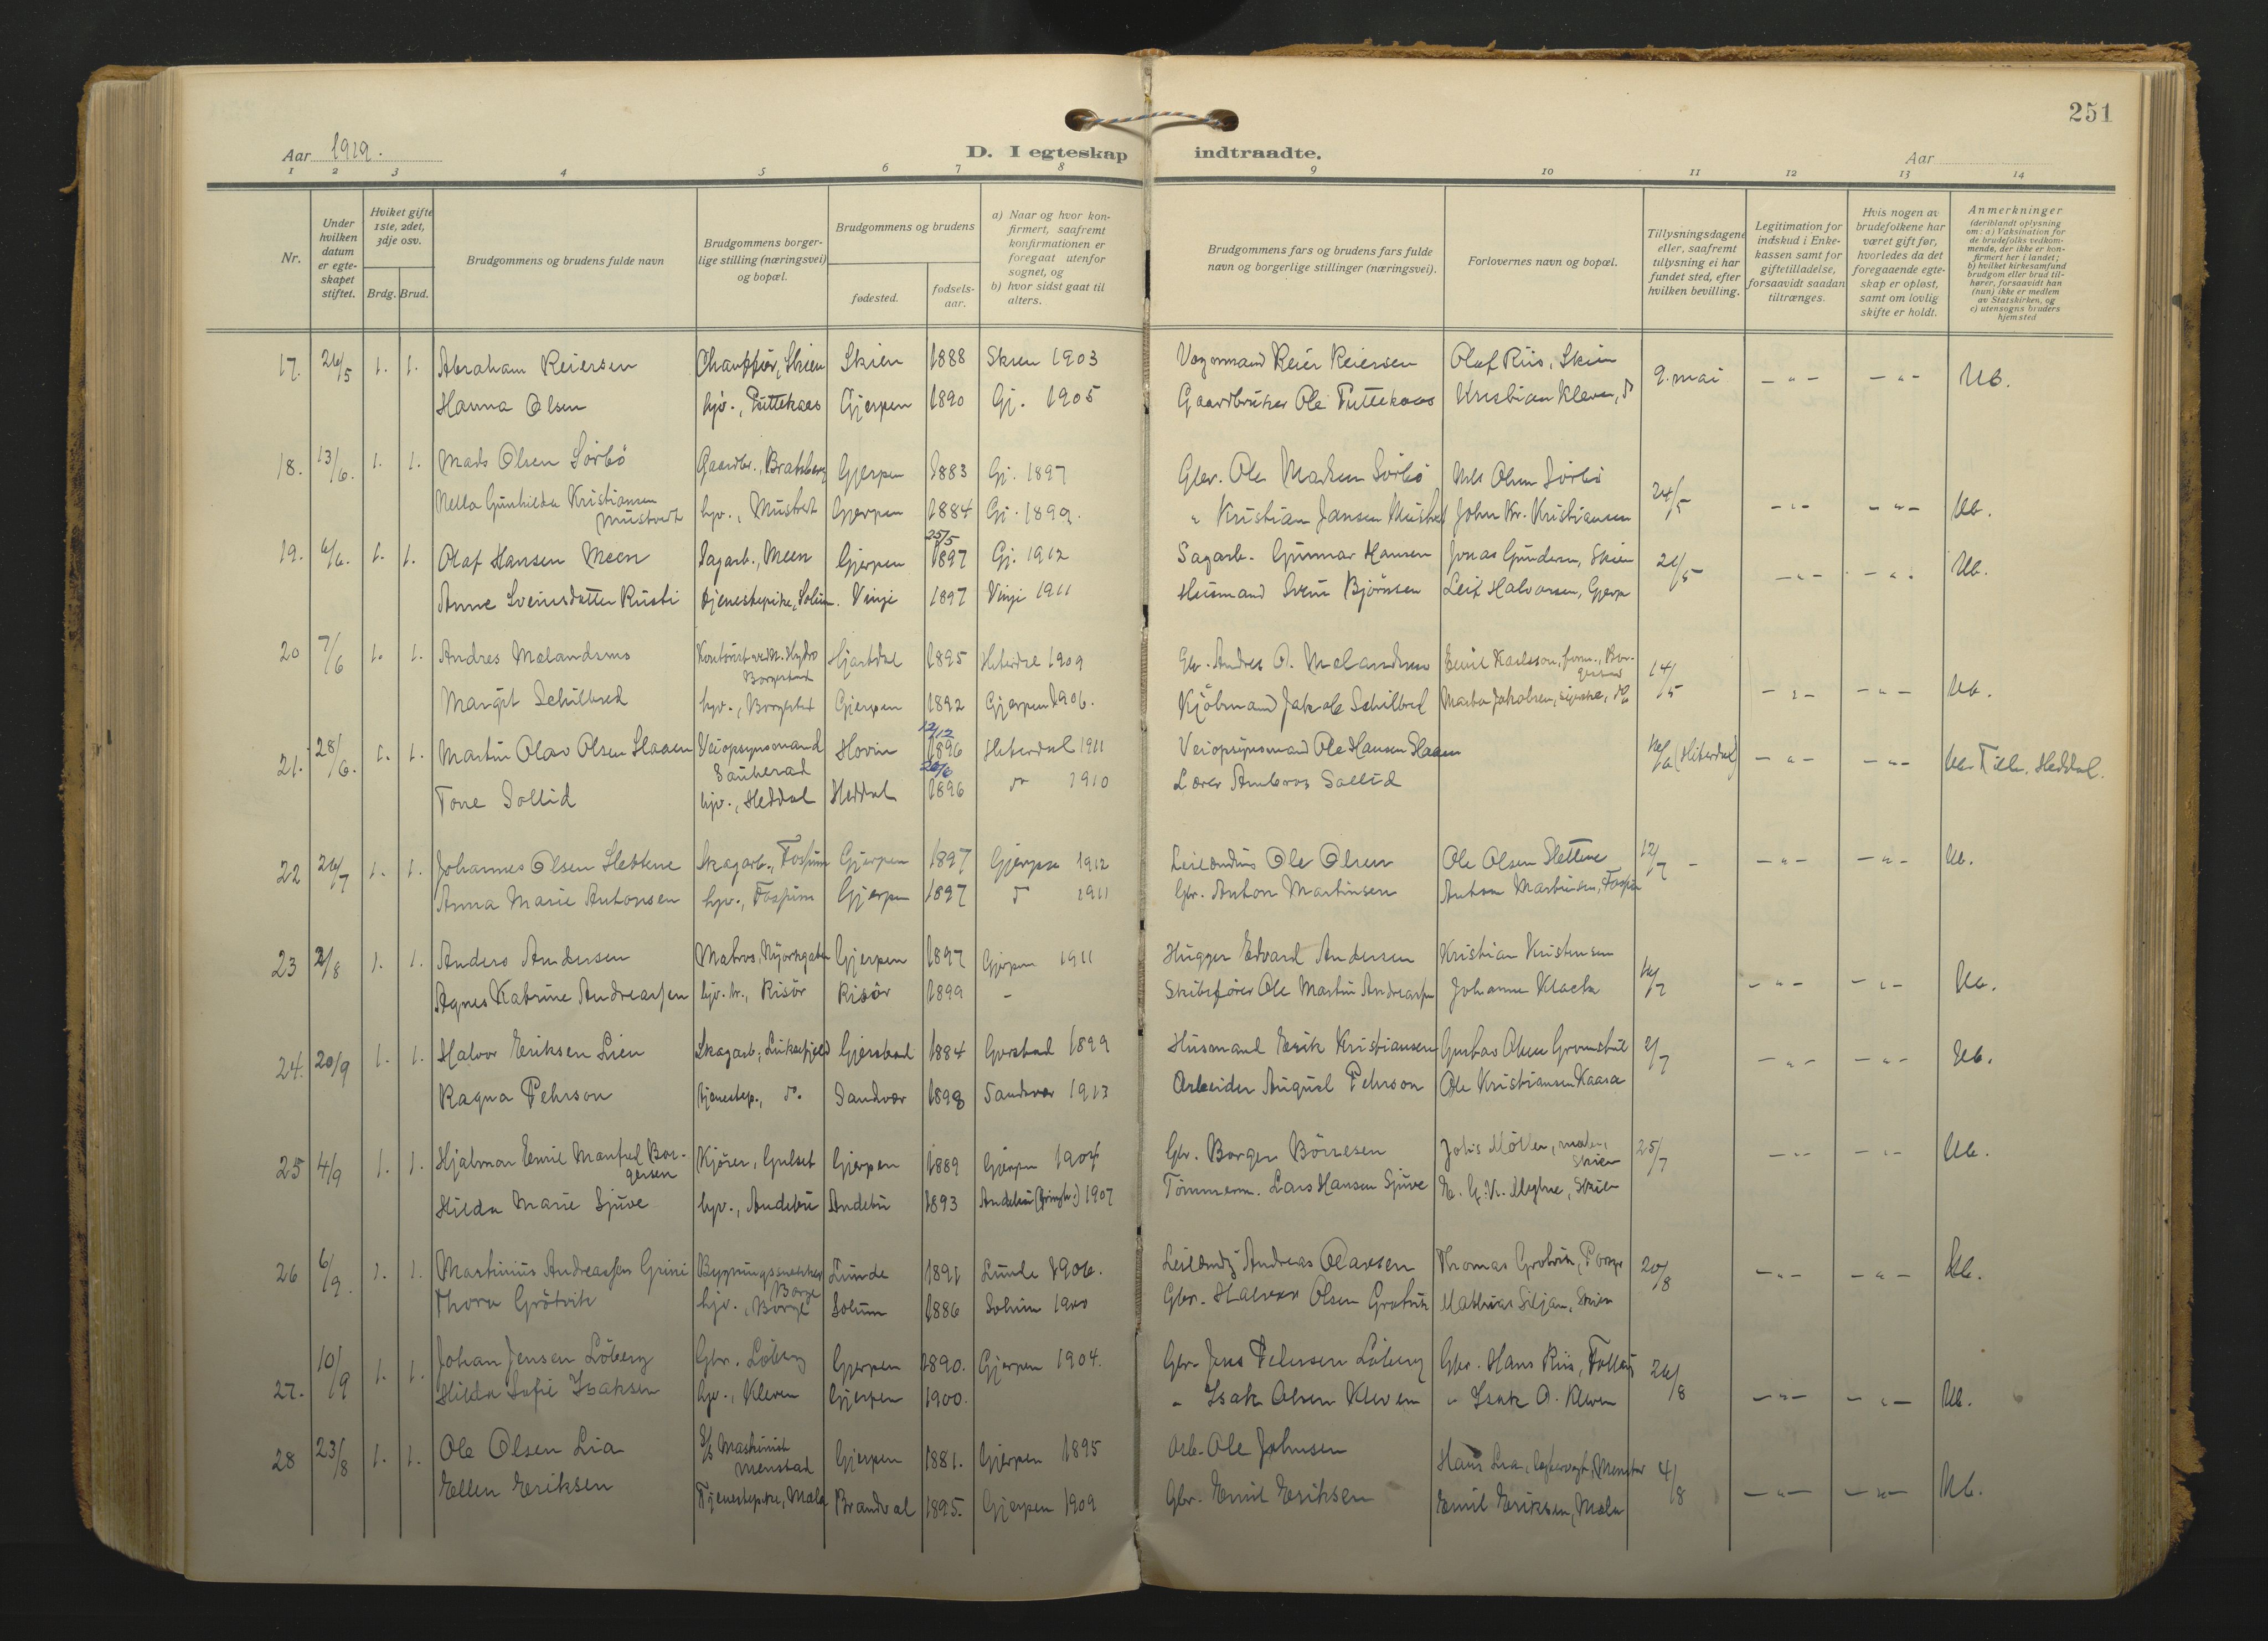 251
Aar 1919.
D. I egteskap indtraadte.
Aar
1 2 3 4 5 6 7 8 9 10 11 12 13 14
Nr.
Under hvilken datum er egteskapet stiftet.
Hviket gifte 1ste, 2det, 3dje osv.
Brdg. Brud.
Brudgommens og brudens fulde navn
Brudgommens borgerlige stilling (næringsvei) og bopæl.
Brudgommens og brudens
fødested.
fødselsaar.
a) Naar og hvor konfirmert, saafremt konfirmationen er foregaat utenfor sognet, og
b) hvor sidst gaat til alters.
Brudgommens fars og brudens fars fulde navn og borgerlige stillinger (næringsvei).
Forlovernes navn og bopæl.
Tillysningsdagene eller, saafremt tillysning ei har fundet sted, efter hvilken bevilling.
Legitimation for indskud i Enkekassen samt for giftetilladelse, forsaavidt saadan tiltrænges.
Hvis nogen av brudefolkene har været gift før, hvorledes da det foregaaende egteskap er opløst, samt om lovlig skifte er holdt.
Anmerkninger (deriblandt oplysning om: a) Vaksination for de brudefolks vedkommende, der ikke er konfirmert her i landet; b) hvilket kirkesamfund brudgom eller brud tilhører, forsaavidt han (nun) ikke er medlem av Statskirken, og c) utensogns bruders hjemsted
17. 26/5 1. 1. Abraham Reiersen Chauffør, Skien Skien 1888 Skien 1903 Vognmand Reier Reiersen Olaf Riis, Skien 9. mai - " - - " - Ub.
Hanna Olsen hjv., Puttekaas Gjerpen 1890 Gj. 1905 Gaardbruker Ole Puttekaas Kristian Kleven, do
18. 13/6. 1. 1. Mads Olsen Sörbö Gaardbr., Brakberg Gjerpen 1883 Gj. 1897 Gbr. Ole Madsen Sörbö Nils Olsen Sörbö 24/5 - " - - " - Ub.
Nella Gunhilda Kristiansen Mustvedt hjv., Mustvedt Gjerpen 1884 Gj. 1899. " Kristian Jansen John Kr. Kristiansen
19. 6/6. 1. 1. Olaf Hansen Meen Sagarb., Meen Gjerpen 25/5 1897 Gj. 1912 Sagarb. Gunnar Hansen Jonas Gundersen, Skien 21/5 - " - - " - Ub.
Anne Sveinsdatter Rusti tjenestepike, Solum. Vinje 1897 Vinje 1911 Husmand Svein Björnsen Leif Halvorsen, Gjerp
20 7/6 1. 1. Andres Malandsmo Kontorist ved N. Hydro Borgestad Hjartdal 1895 Hiterdal 1909 Gbr. Andres A. Malandsmo Emil Karlsson, form., Borgestad 14/5 - " - - " - Ub.
Margit Schilbred hjv., Borgestad Gjerpen 1892 Gjerpen 1906. Kjöbmand Jakob Schilbred Marta Jakobsen, do
21. 28/6. 1. 1. Martin Olav Olsen Haaen Veiopsynsmand Sauherad Hovin 12/12 1896 Hiterdal 1911 Veiopsynsmand Ole Hansen Haaen (Hiterdal) - " - - " - Ub. Till. Heddal.
Tone Sollid hjv., Heddal Heddal 20/6 1896 do 1910 Lærer Ambros Sollid
22 26/7 1. 1. Johannes Olsen Slettene Skogarb., Fossum Gjerpen 1897 Gjerpen 1912 Leilending Ole Olsen Ole Olsen Slettene 12/7 - - " - - " - Ub.
Anna Marie Antonsen hjv., Fossum Gjerpen 1897 do 1911 Gbr. Anton Martinsen Anton Martinsen, Fossum
23 2/8 1. 1. Anders Andersen Matros, Gjerpen 1897 Gjerpen 1911 Hugger Edvard Andersen Kristian Kristensen - " - - " - Ub.
Agnes Katrine Andreassen hjv. tr., Risör Risör 1899 - Skibsfører Ole Martin Andreassen Johanne
24. 20/9 1. 1. Halvor Eriksen Lien Skogarb., Luksefjeld Gjerstad 1884 Gjerstad 1899 Husmand Erik Kristiansen Gustav Olsen Gromstul 2/7 - " - - " - Ub.
Ragna Pehrson tjenestep., do. Sandvær 1898 Sandsvær 1913 Arbeider August Pehrson Ole Kristiansen Kaasa
25 4/9 1. 1. Hjalmar Emil Manfred Borgersen Kjører, Gulset Gjerpen 1889 Gjerpen 1904 Gbr. Borger Börresen Johs Möller, maler, Skien 25/7 - " - - " - Ub.
Hilda Marie Sjuve hjv., Andebu Andebu 1893 Andebu 1907 Tömmerm. Lars Hansen Sjuve Skien
26 6/9. 1. 1. Martinius Andreassen Grini Bygningssnekker Borge Lunde 1891 Lunde 1906. Leilending Andreas Olavsen Thomas Grotvik, 20/8 - " - - " - Ub.
Thora Grötvik hjv., Borge Solum 1886 Solum 1900 Gbr. Halvor Olsen Grotvik Mathias Siljan, Skien
27. 10/9 1. 1. Johan Jensen Löberg Gbr. Löberg Gjerpen 1890. Gjerpen 1904. Gbr. Jens Pedersen Löberg Gbr. Hans Riis, 26/8 - " - - " - Ub.
Hilda Sofie Isaksen hjv., Kleven Gjerpen 1900. " Isak Olsen Kleven " Isak O. Kleven
28 23/8 1. 1. Ole Olsen Lia Maskinist Menstad Gjerpen 1881. Gjerpen 1895 Arb. Ole Johnsen Hans Lia, Menstad 4/8 - " - - " - Ub.
Ellen Eriksen Tjenestepike, Mæla Brandval 1895. Gjerpen 1909 Gbr. Emil Eriksen Emil Eriksen, Mæla